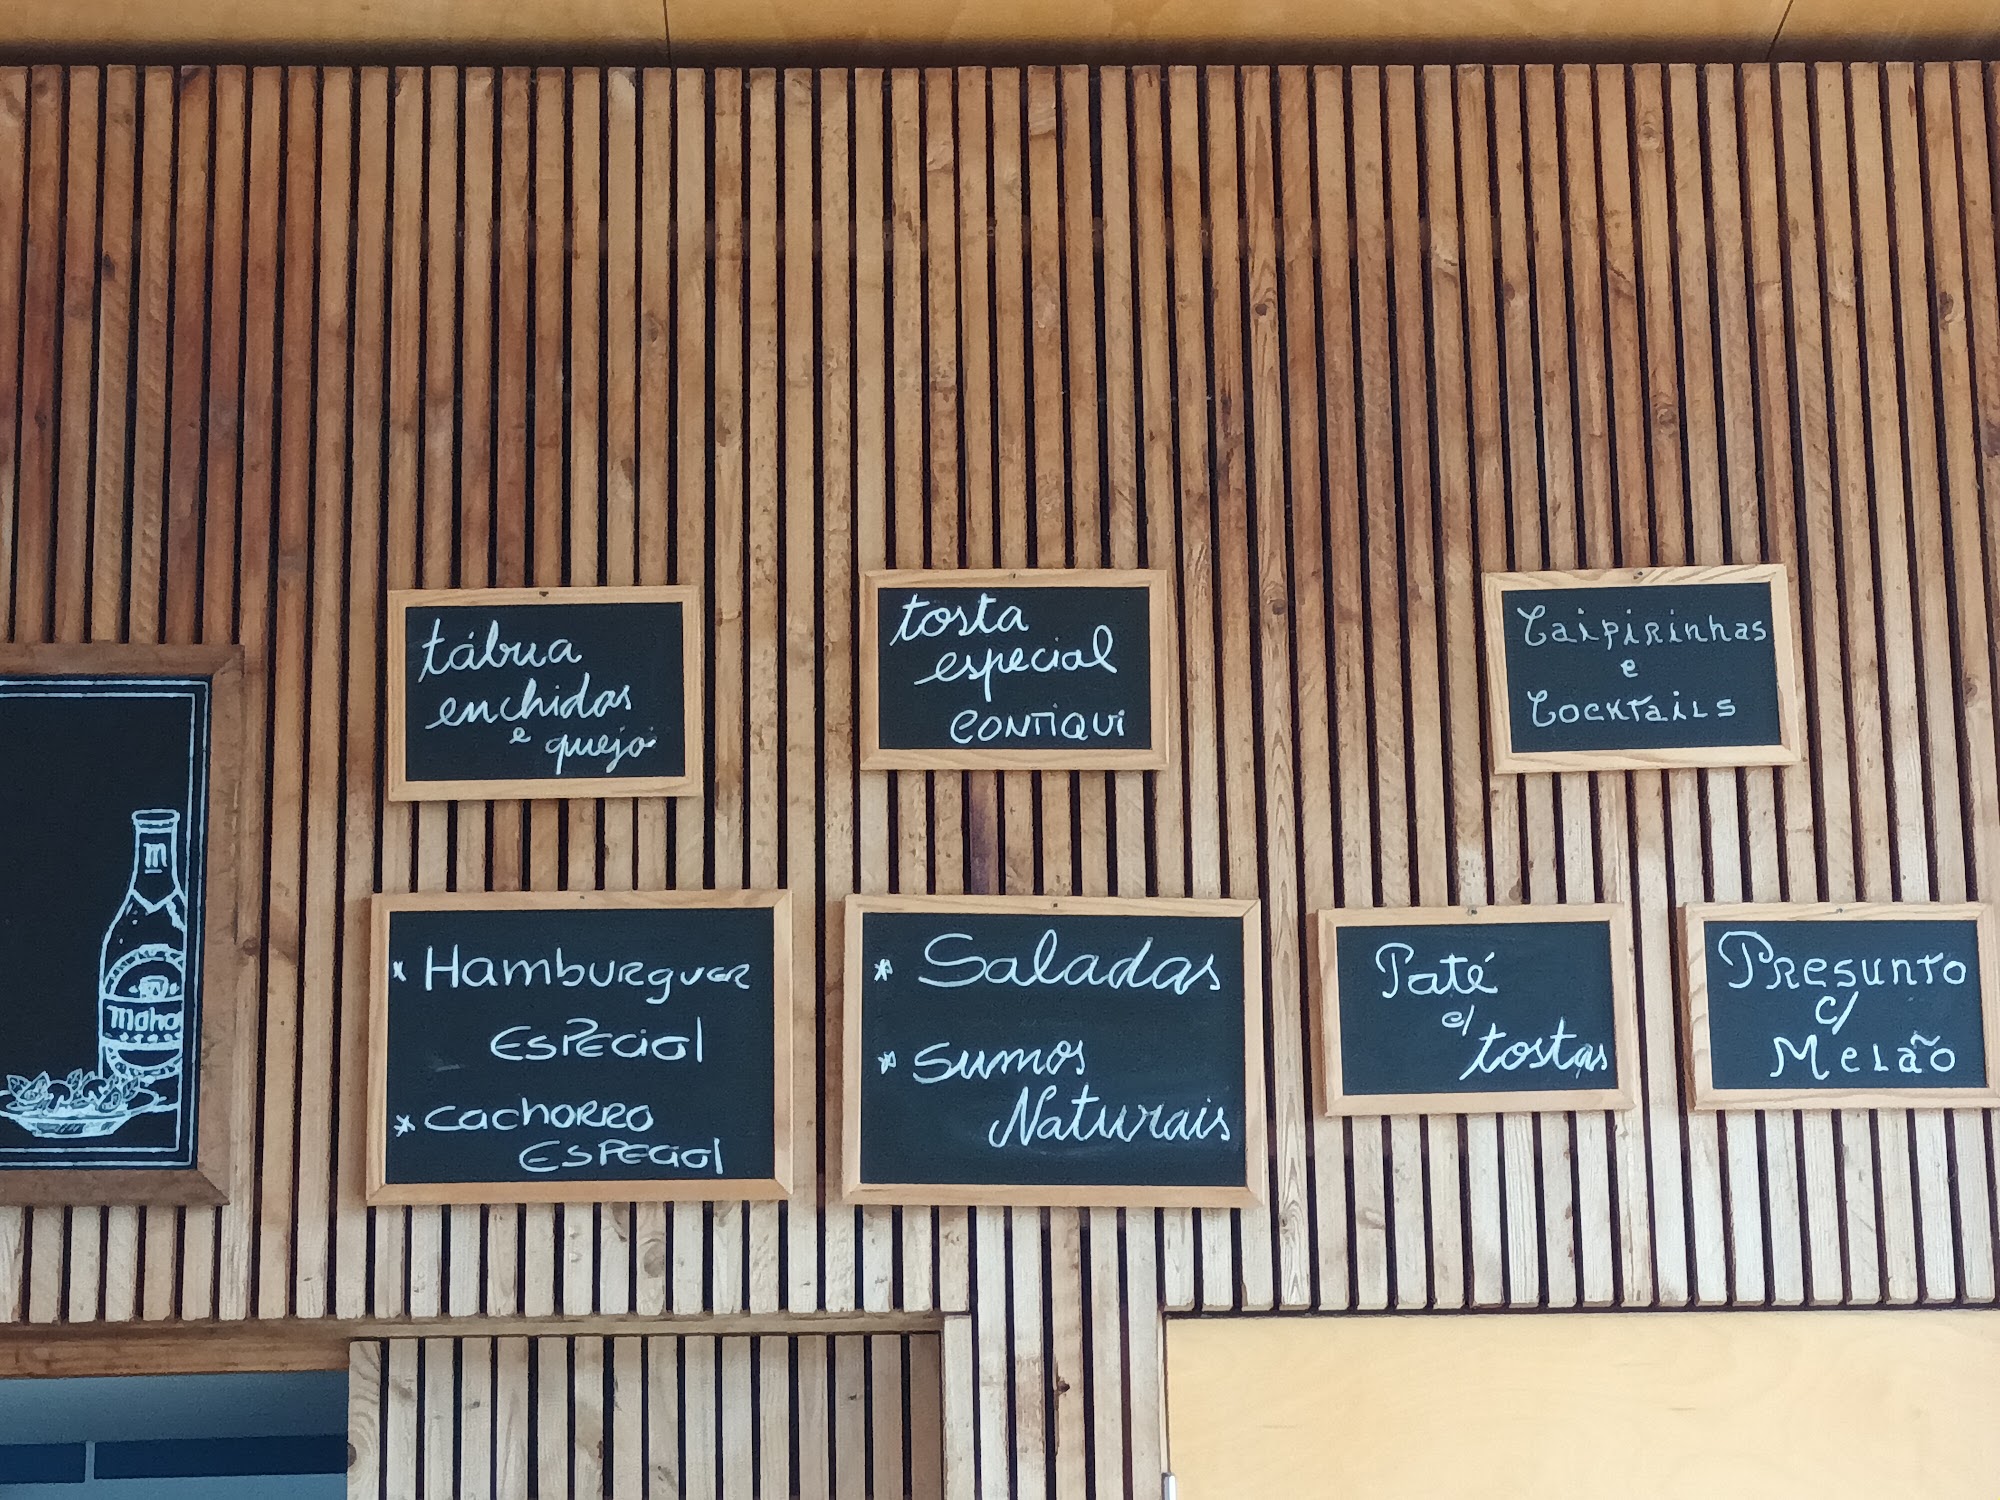 tábua
enchidos
e queijo
tosta
especial
CONTIQUI
Caipirinhas
e
Cocktails
m
Maho
* Hamburguer
Especial
* Cachorro
Especial
* Saladas
* Sumos
Naturais
Paté
c/
tostas
Presunto
c/
Melão